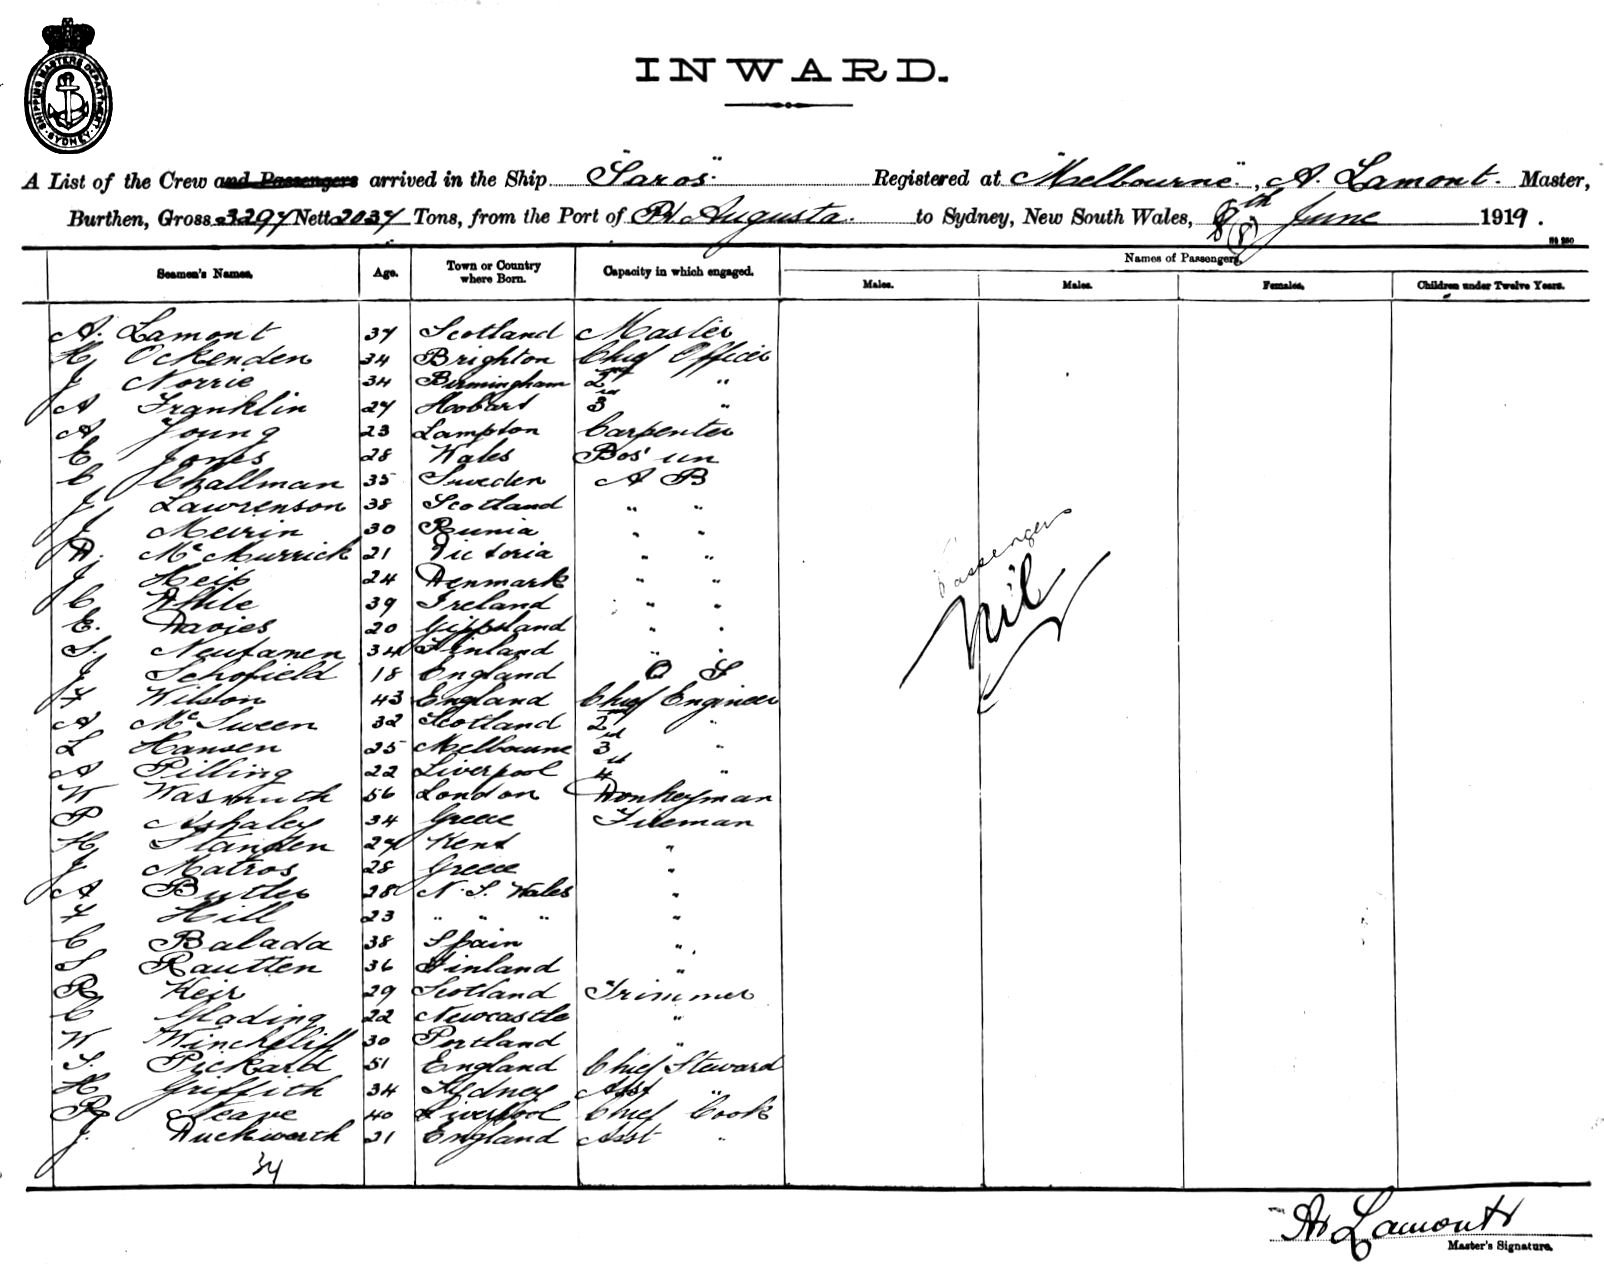 SHIPPING MASTERS DEPARTMENT · SYDNEY ·
INWARD.
A List of the Crew and Passengers arrived in the Ship "Saros" Registered at "Melbourne", A. Lamont. Master,
Burthen, Gross 3297 Nett 2037 Tons, from the Port of Pt Augusta. to Sydney, New South Wales, 8th (8) June 1919.
Names of Passengers.
Seamen's Names. Age. Town or Country where Born. Capacity in which engaged. Males. Males. Females. Children under Twelve Years.
A. Lamont 37 Scotland Master
H. Ockenden 34 Brighton Chief Officer
J Norrie 34 Birmingham 2nd "
A Franklin 27 Hobart 3rd "
A Young 23 Lampton Carpenter
E Jones 28 Wales Bos'un
C Challman 35 Sweden A B
J Lawrenson 38 Scotland " "
J Meirin 30 Russia " "
D. McMurrick 21 Victoria " "
J Heip 24 Denmark " "
C White 39 Ireland " "
E. Davies 20 Gippsland " "
S. Neufanen 34 Finland " "
J Schofield 18 England O S
F Wilson 43 England Chief Engineer
A McSween 32 Scotland 2nd "
L Hansen 25 Melbourne 3rd "
A Pilling 22 Liverpool 4th "
W Wasmuth 56 London Donkeyman
P Ashaley 34 Greece Fireman
H Standen 27 Kent "
J Matros 28 Greece "
A Butler 28 N. S. Wales "
F Hill 23 " " " "
C Balada 38 Spain "
S Rautten 36 Finland "
R Keir 29 Scotland Trimmer
C Glading 22 Newcastle "
W Winchcliff 30 Portland "
S. Pickard 51 England Chief Steward
H Griffith 34 Sydney Asst "
R Neave 40 Liverpool Chief Cook
J. Duckworth 21 England Asst "
34
Passengers
Nil
A Lamont
Master's Signature.